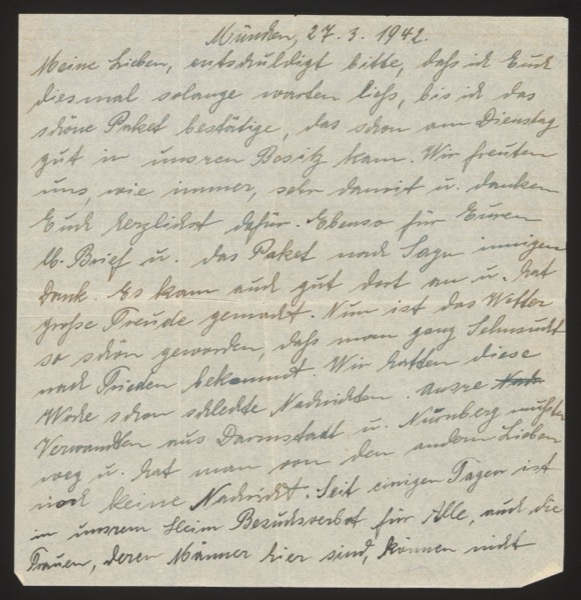 München, 27.3.1942.
Meine Lieben, entschuldigt bitte, daß ich Euch
diesmal solange warten ließ, bis ich das
schöne Paket bestätige, das schon am Dienstag
gut in unsren Besitz kam. Wir freuten
uns, wie immer, sehr damit u. danken
Euch herzlichst dafür. Ebenso für Euren
lb. Brief u. das Paket nach Sagn innigen
Dank. Es kam auch gut dort an u. hat
große Freude gemacht. Nun ist das Wetter
so schön geworden, daß man ganz Sehnsucht
nach Frieden bekommt. Wir hatten diese
Woche schon schlechte Nachrichten. Unsre
Verwandten aus Darmstadt u. Nürnberg mußten
weg u. hat man von den andern Lieben
noch keine Nachricht. Seit einigen Tagen ist
in unsrem Heim Besuchsverbot für Alle, auch die
Frauen, deren Männer hier sind, können nicht